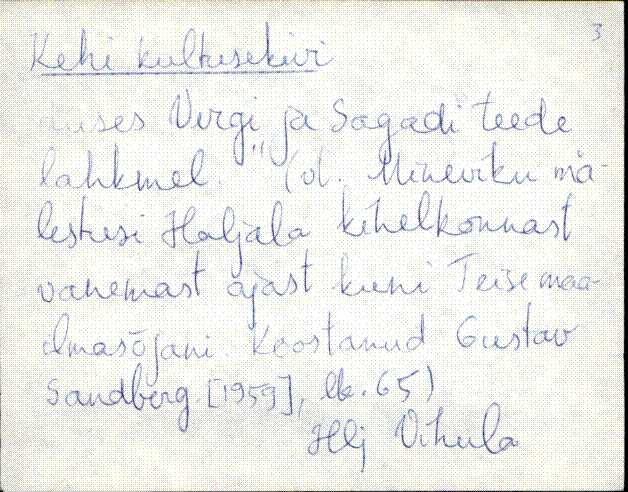 3
Kehi kultusekivi
Vergi ja Sagadi teede
lahkmel." (vt. Mineviku mä-
lestusi Haljala kihelkonnast
vanemast ajast kuni Teise maa-
ilmasõjani. Koostanud Gustav
Sandberg. [1959], lk. 65)
Hlj Vihula